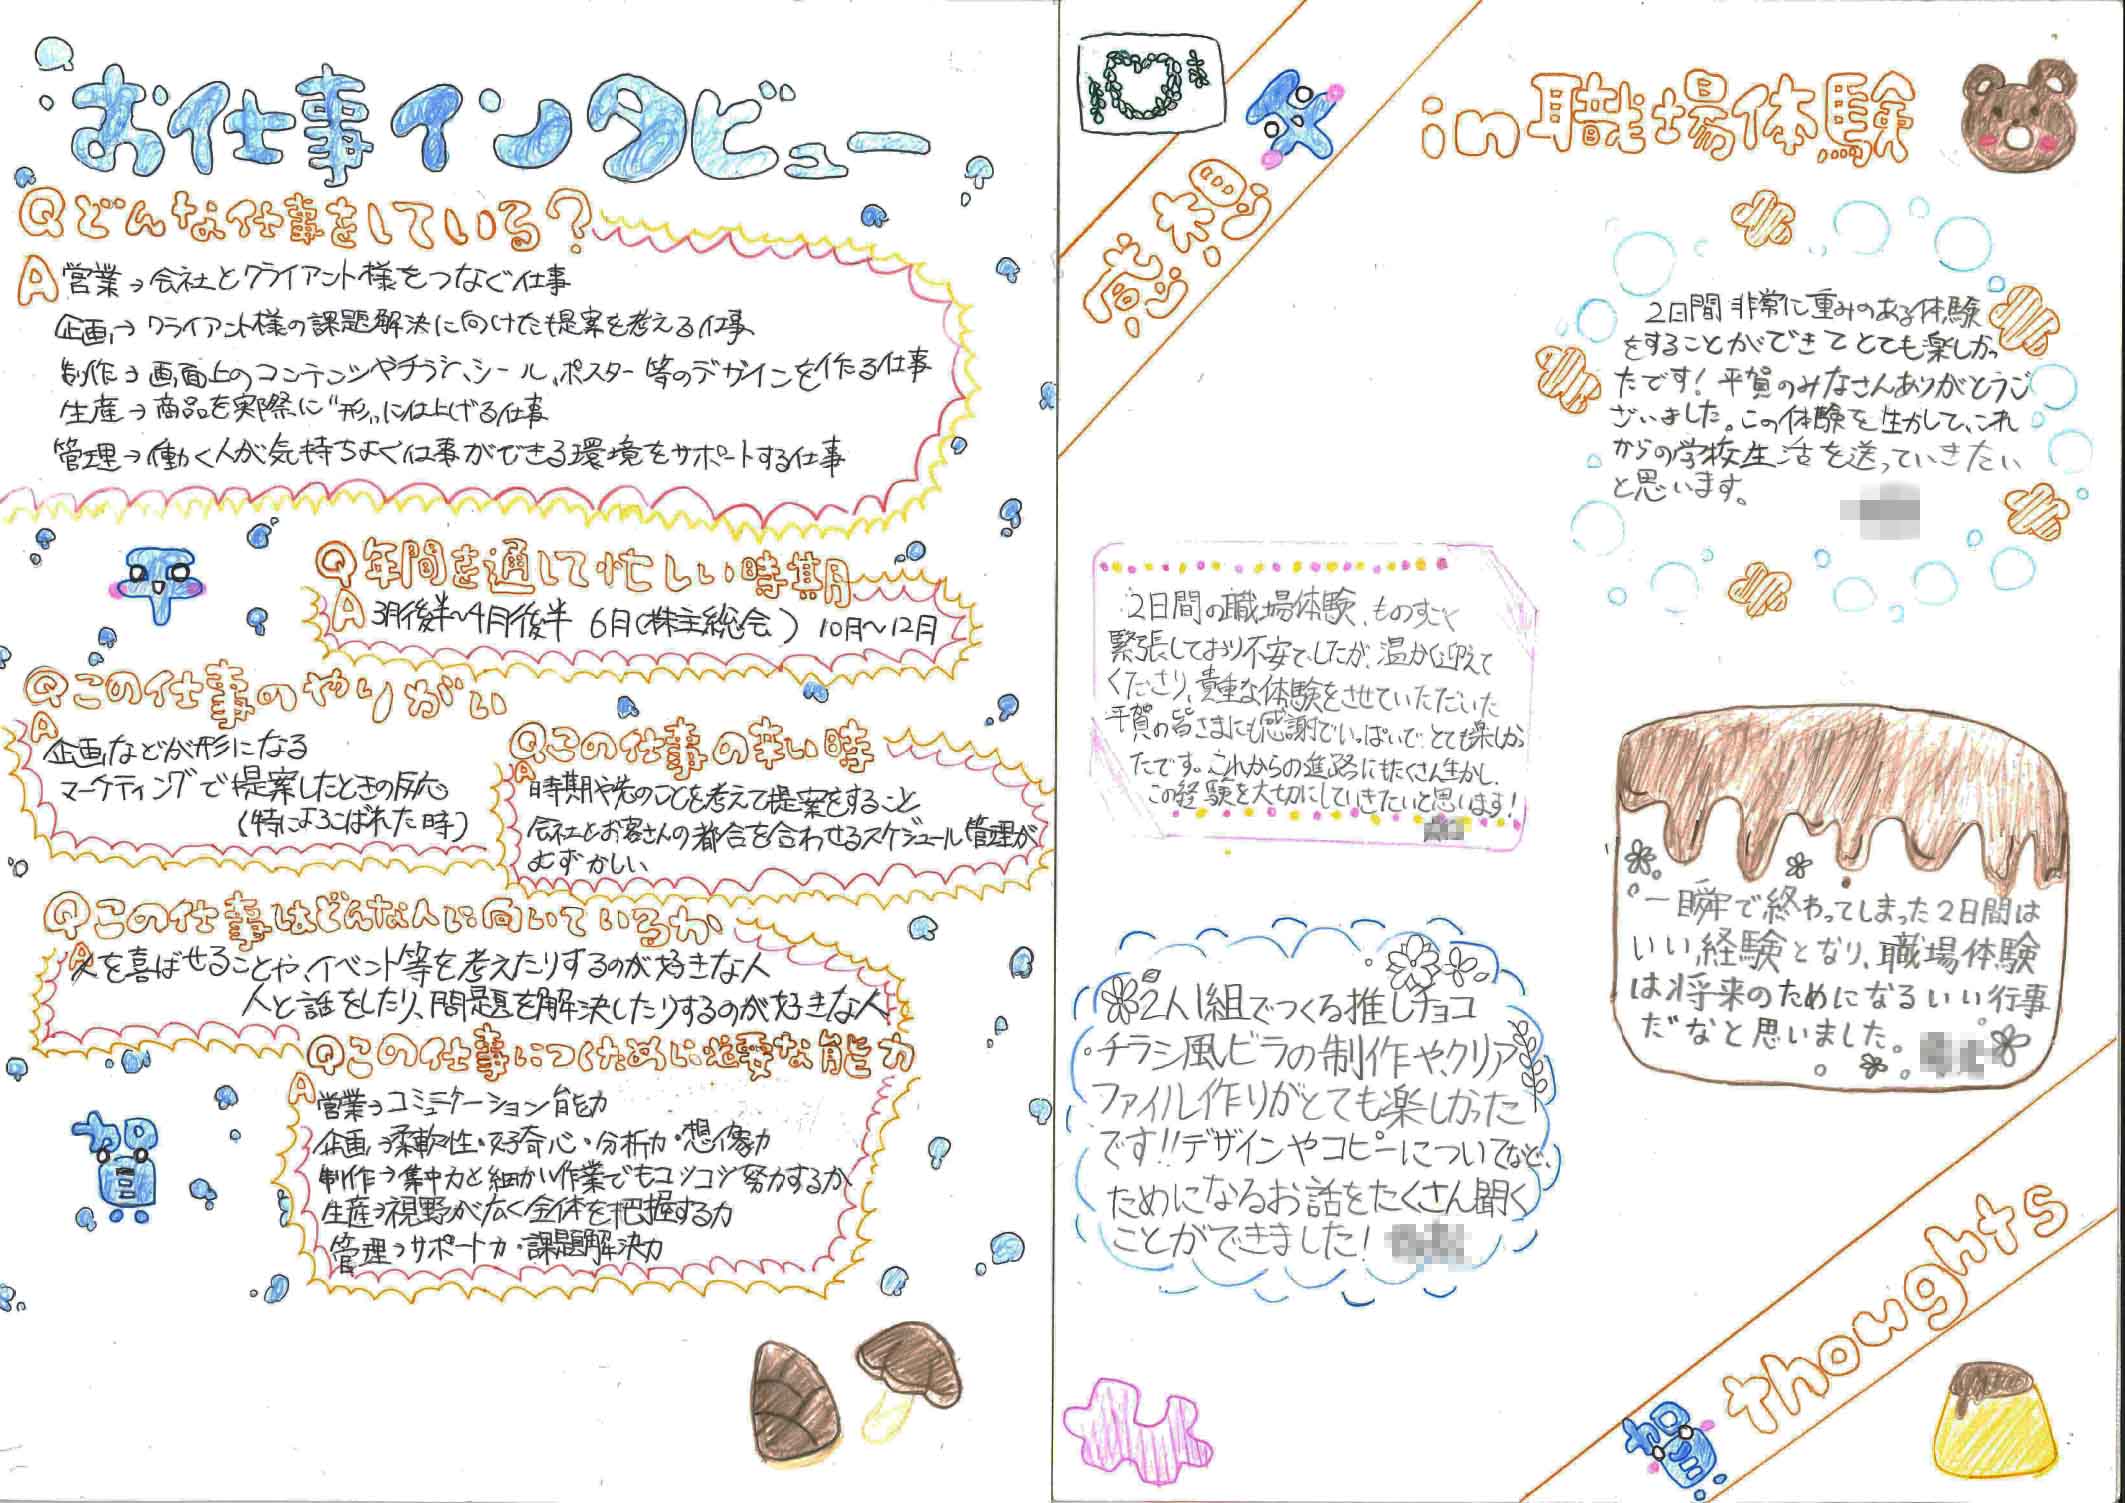 お仕事インタビュー
Qどんな仕事をしている？
A 営業→会社とクライアント様をつなぐ仕事
企画→クライアント様の課題解決に向けた提案を考える仕事
制作→画面上のコンテンツやチラシ、シール、ポスター等のデザインを作る仕事
生産→商品を実際に"形"に仕上げる仕事
管理→働く人が気持ちよく仕事ができる環境をサポートする仕事
平
Q年間を通して忙しい時期
A 3月後半~4月後半 6月(株主総会) 10月~12月
Qこの仕事のやりがい
A
企画などが形になる
マーケティングで提案したときの反応
(特によろこばれた時)
Qこの仕事の辛い時
A
時期や先のことを考えて提案をすること
会社とお客さんの都合を合わせるスケジュール管理が
むずかしい
Qこの仕事はどんな人に向いているか
A
人を喜ばせることや、イベント等を考えたりするのが好きな人
人と話をしたり、問題を解決したりするのが好きな人
Qこの仕事につくために必要な能力
A
営業→コミュニケーション能力
企画→柔軟性・好奇心・分析力・想像力
制作→集中力と細かい作業でもコツコツ努力する力
生産→視野が広く全体を把握する力
管理→サポート力・課題解決力
賀
感想
平
in職場体験
2日間非常に重みのある体験
をすることができてとても楽しかっ
たです！平賀のみなさんありがとうご
ざいました。この体験を生かして、これ
からの学校生活を送っていきたい
と思います。
2日間の職場体験、ものすごく
緊張しており不安でしたが、温かく迎えて
くださり、貴重な体験をさせていただいた
平賀の皆さまにも感謝でいっぱいで、とても楽しかっ
たです。これからの進路にもたくさん生かし、
この経験を大切にしていきたいと思います！
一瞬で終わってしまった2日間は
いい経験となり、職場体験
は将来のためになるいい行事
だなと思いました。
2人1組でつくる推しチョコ
チラシ風ビラの制作や、クリア
ファイル作りがとても楽しかった
です!!デザインやコピーについてなど、
ためになるお話をたくさん聞く
ことができました！
賀
thoughts